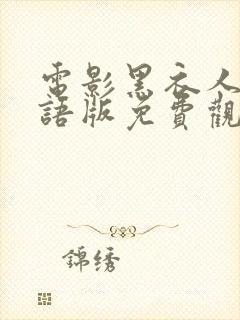 電影黑衣人
語版免費觀
錦绣